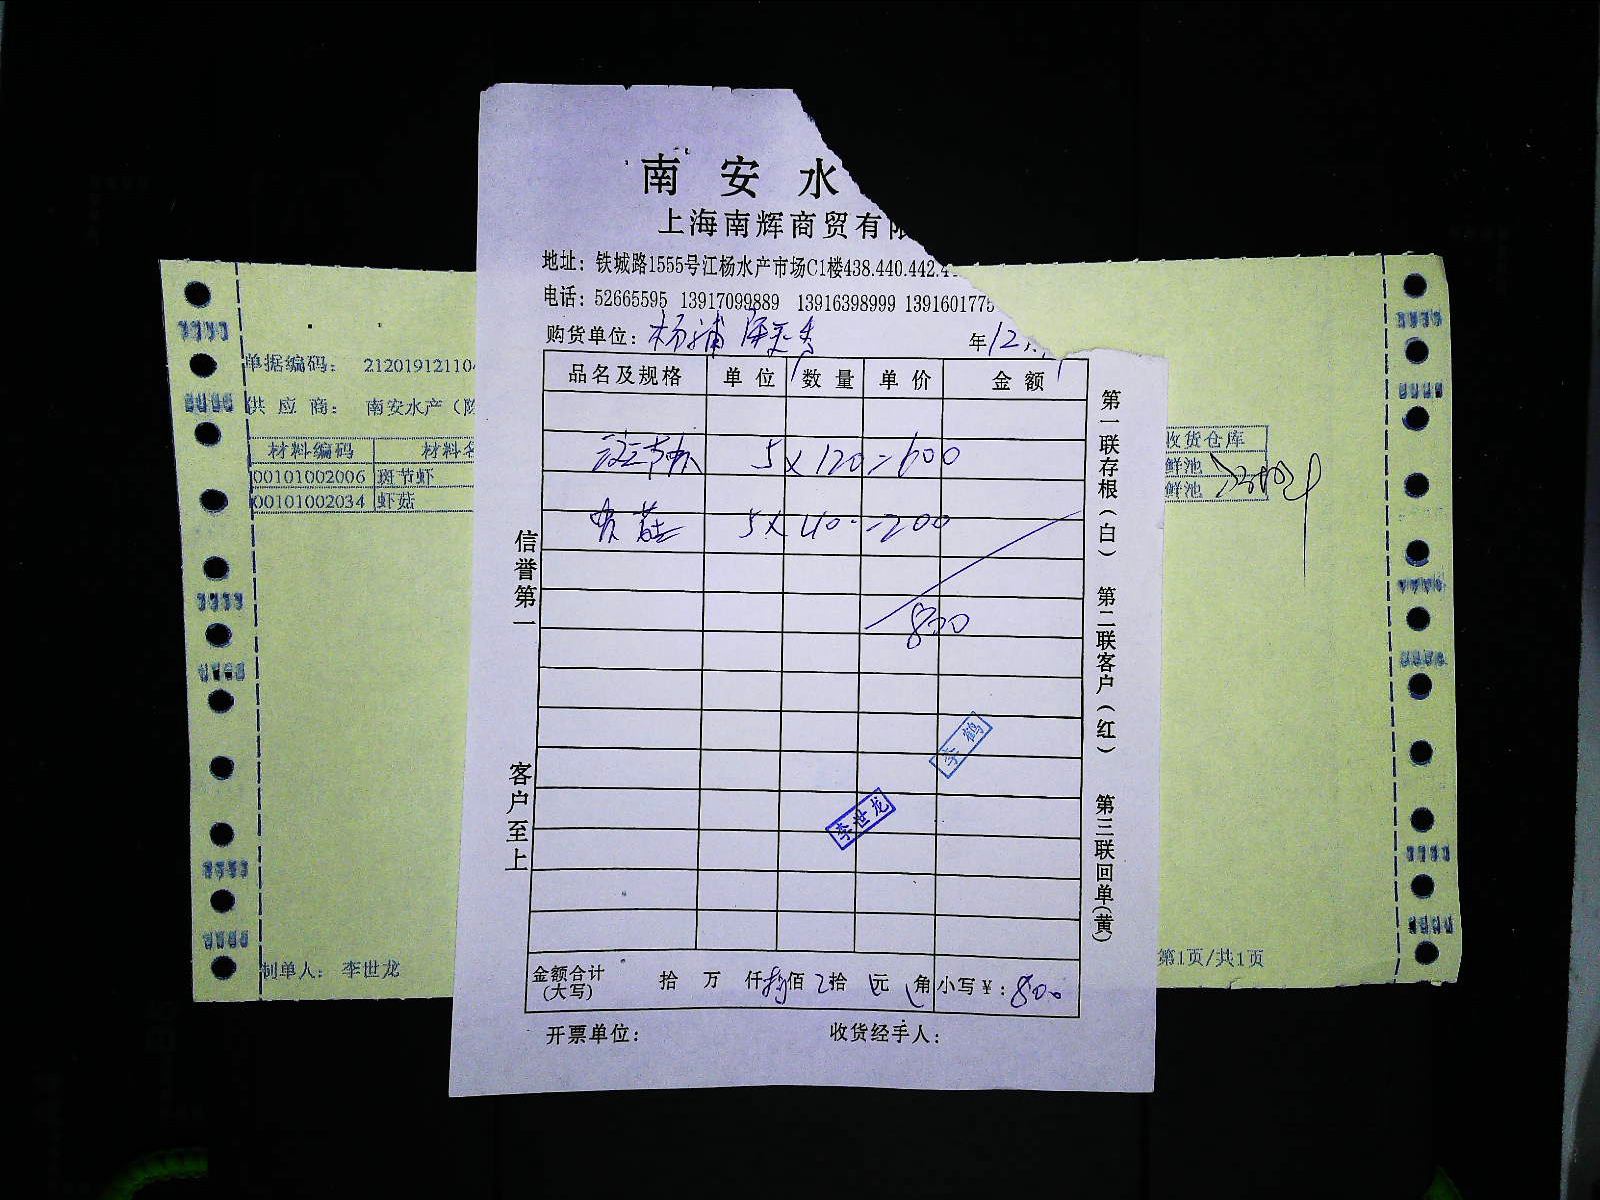 南安水
上海南辉商贸有限
地址：铁城路1555号江杨水产市场C1楼438.440.442.4
电话：52665595 13917099889 13916398999 1391601775
购货单位：杨浦 年12
品名及规格 单位 数量 单价 金额
5×120=600
虾菇 5×40=200
800
李鹤
李世龙
金额合计(大写) 拾 万 仟 捌佰 拾 元 角 小写￥：800
开票单位： 收货经手人：
信誉第一 客户至上
第一联存根(白) 第二联客户(红) 第三联回单(黄)
单据编码： 212019121104
供应商： 南安水产（
材料编码 材料名
00101002006 斑节虾
00101002034 虾菇
制单人： 李世龙
收货仓库
鲜池
鲜池
第1页/共1页